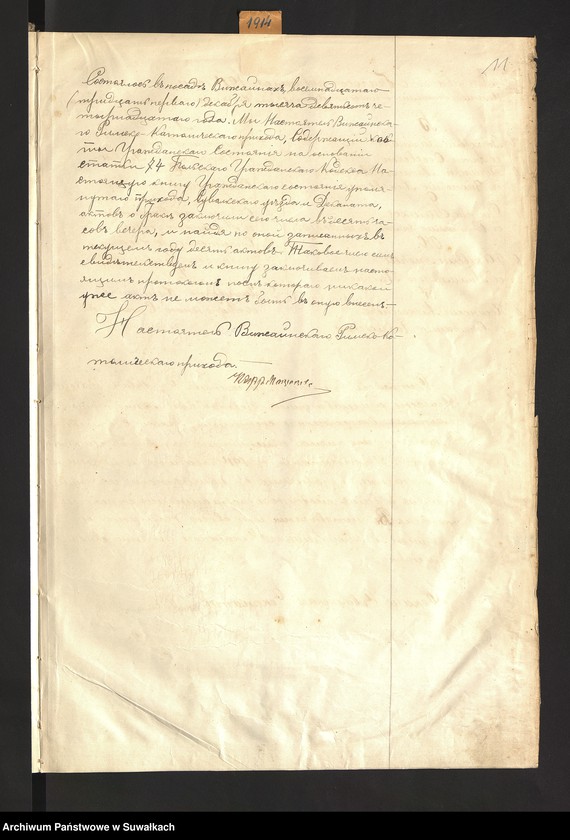 1914
11
Состоялось въ посадѣ Вижайнахъ, восемнадцатаго
(тридцать перваго) Декабря тысяча девятьсотъ че-
тырнадцатаго года. Мы Настоятель Вижайнска-
го Римско-Католическаго прихода, содержащій
Гражданскаго Состоянія на основаніи
статьи 74 Польскаго Гражданскаго Кодекса На-
стоящую книгу Гражданскаго состоянія упомя-
нутаго прихода, Сувалкскаго уѣзда и Деканата,
актовъ о бракѣ заключили сего числа въ десять ча-
совъ вечера, и найдя по оной записанныхъ въ
текущемъ году десять актовъ. Таковое число симъ
свидѣтельствуемъ и книгу заключиваемъ насто-
ящимъ протоколомъ послѣ котораго никакой
уже актъ не можетъ быть въ оную внесенъ.—
Настоятель Вижайнскаго Римско-Ка-
толическаго прихода.
Archiwum Państwowe w Suwałkach